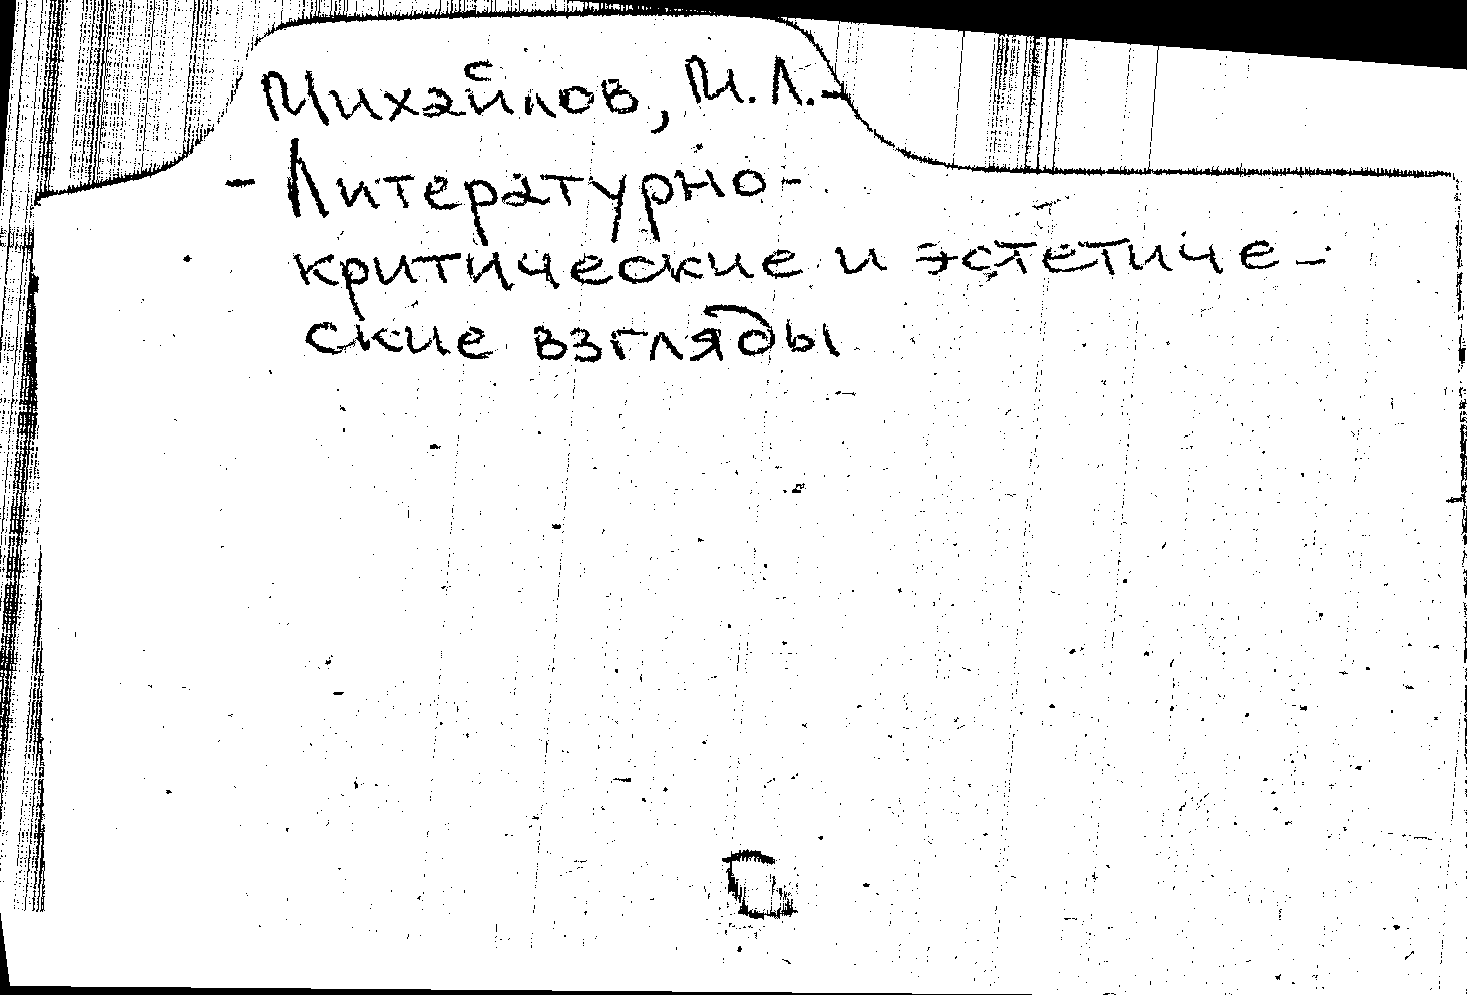 Михайлов, М.Л.-
- Литературно-
критические и эстетиче-
ские взгляды